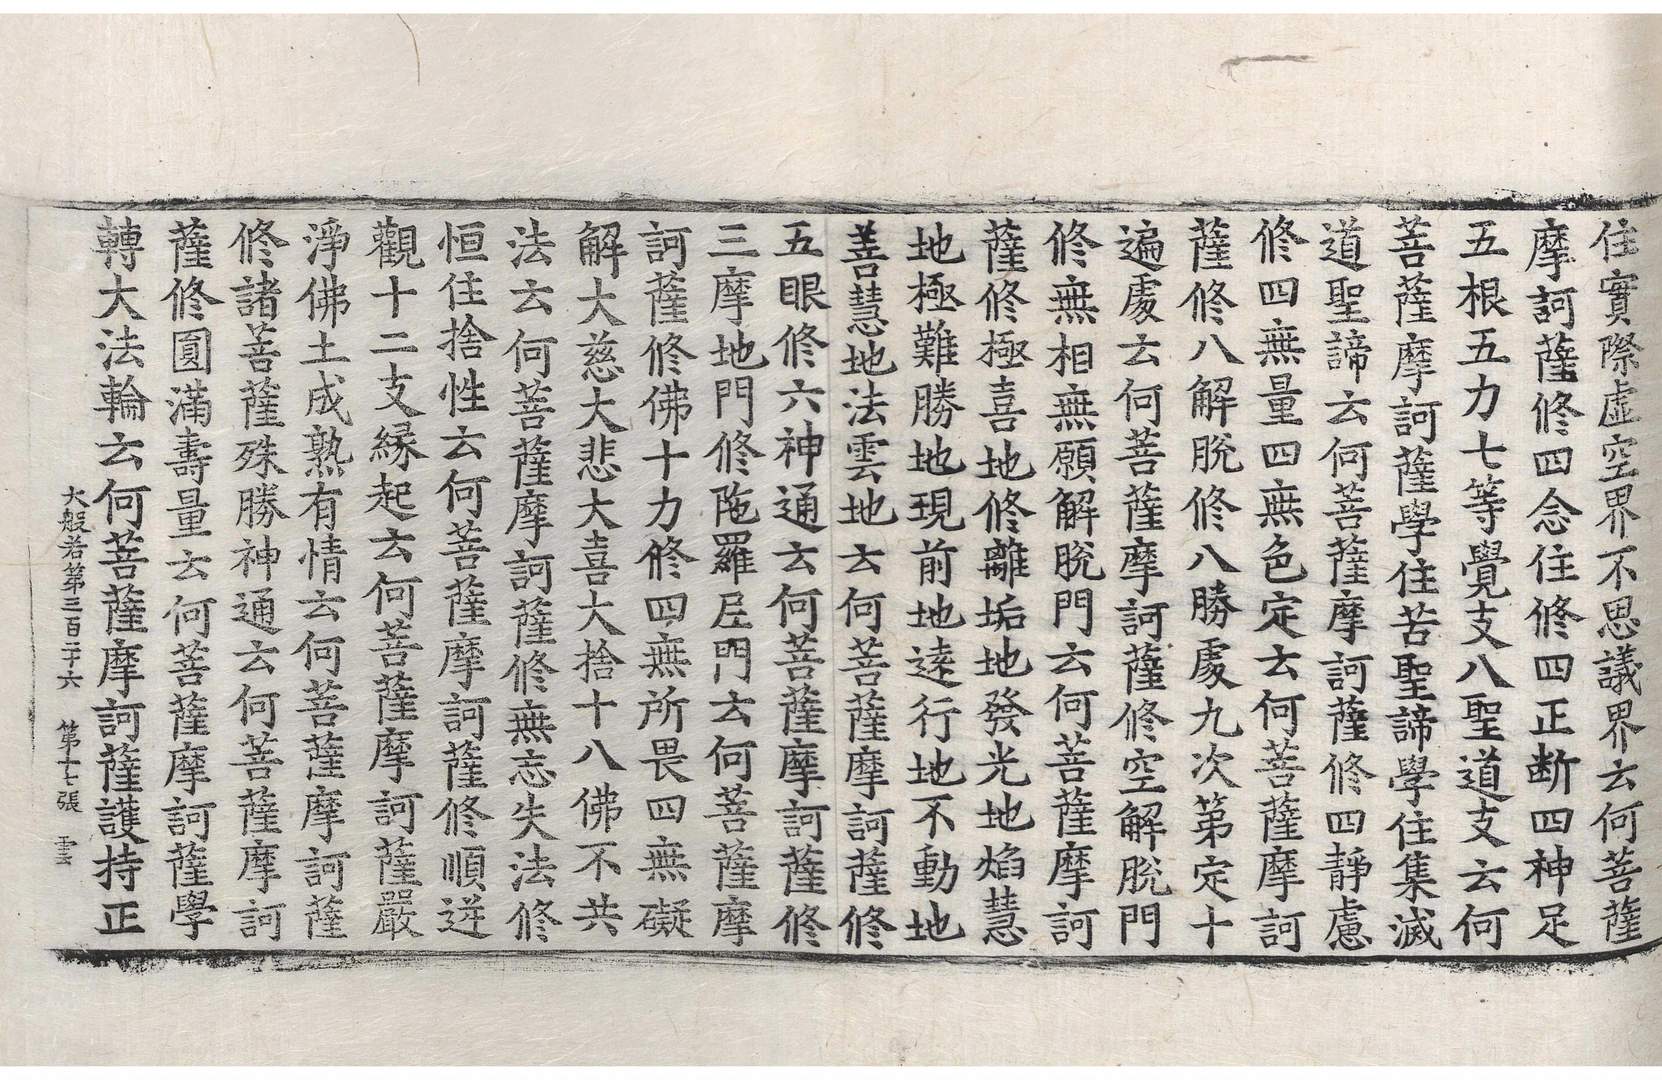 住實際虛空界不思議界云何菩薩
摩訶薩修四念住修四正断四神足
五根五力七等覺支八聖道支云何
菩薩摩訶薩學住苦聖諦學住集滅
道聖諦云何菩薩摩訶薩修四靜慮
修四無量四無色定云何菩薩摩訶
薩修八解脫修八勝處九次第定十
遍處云何菩薩摩訶薩修空解脫門
修無相無願解脫門云何菩薩摩訶
薩修極喜地修離垢地發光地焰慧
地極難勝地現前地遠行地不動地
善慧地法雲地云何菩薩摩訶薩修
五眼修六神通云何菩薩摩訶薩修
三摩地門修陁羅尼門云何菩薩摩
訶薩修佛十力修四無所畏四無礙
解大慈大悲大喜大捨十八佛不共
法云何菩薩摩訶薩修無忘失法修
恒住捨性云何菩薩摩訶薩修順逆
觀十二支緣起云何菩薩摩訶薩嚴
淨佛土成熟有情云何菩薩摩訶薩
修諸菩薩殊勝神通云何菩薩摩訶
薩修圓滿壽量云何菩薩摩訶薩學
轉大法輪云何菩薩摩訶薩護持正
大般若第三百二十六 第十七張 雲